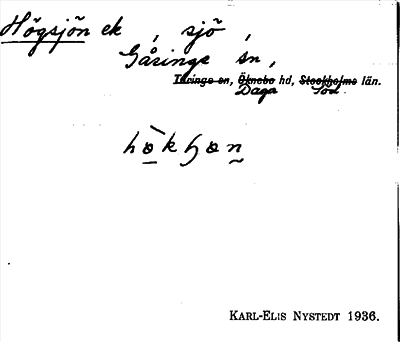 Högsjön ek, sjö,
Gåsinge sn,
Turinge sn, Öknebo hd, Stockholms län.
Daga Söd.
KARL-ELIS NYSTEDT 1936.